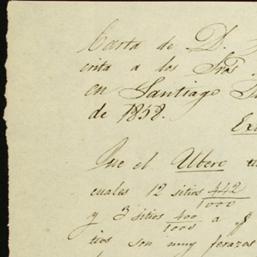 Carta de D.
crita a los Sres
en Santiago
de 1858.
Que el Ubero
cuales 12 sitios 442/1000
y 3 sitios 400/1000 a
tios son muy feraces